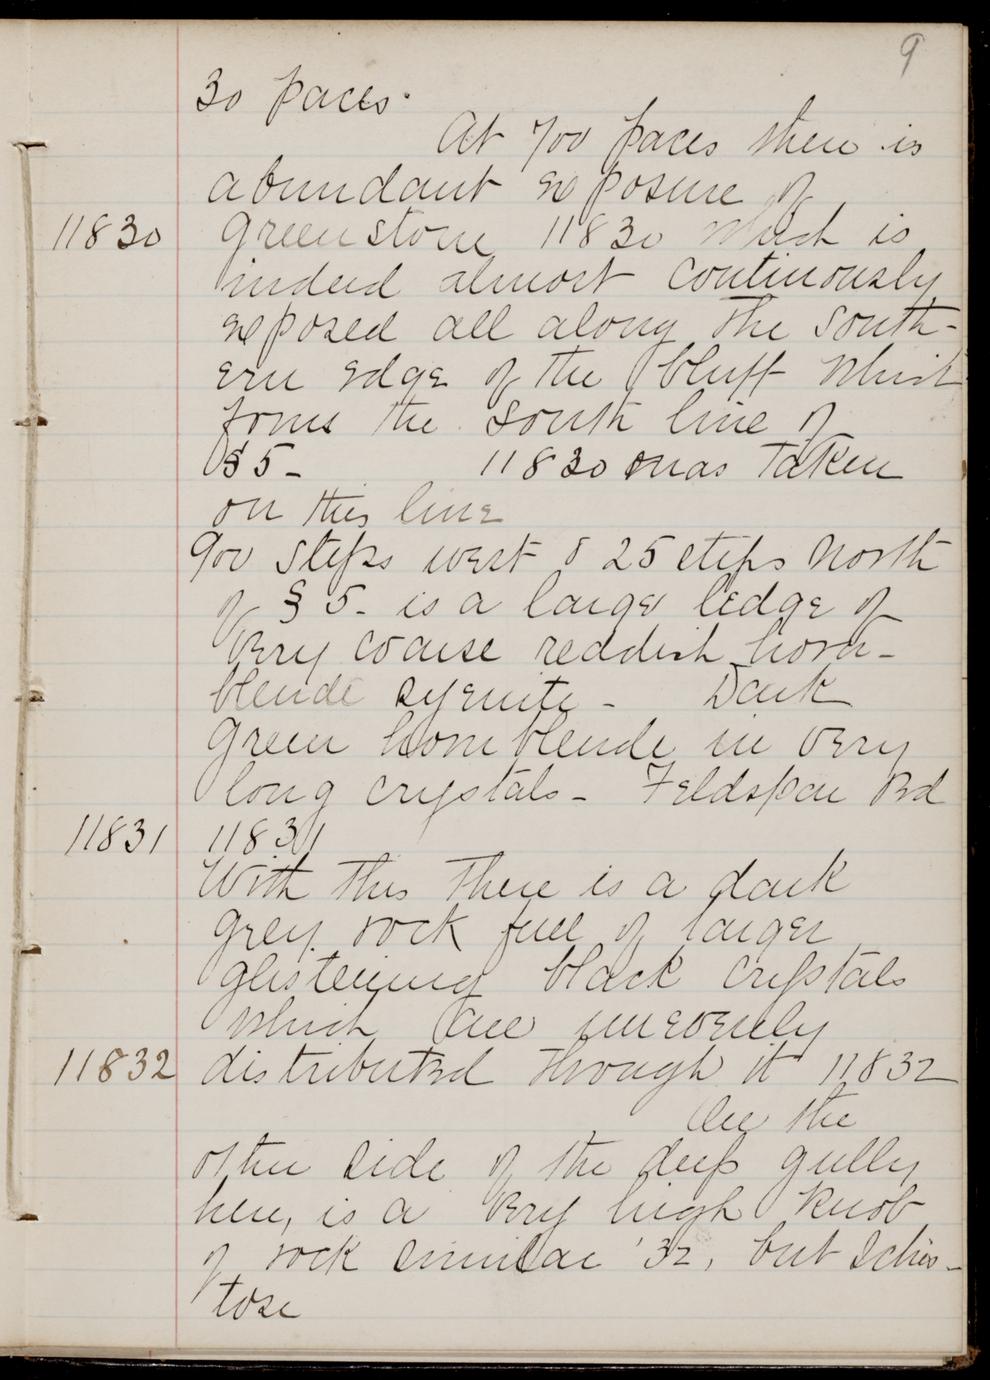 9
30 paces.
At 700 paces there is
abundant exposure of
11830 greenstone 11830 which is
indeed almost continuously
exposed all along the south-
ern edge of the bluff which
forms the south line of
§ 5 - 11830 was taken
on this line
900 steps west & 25 steps north
of § 5 - is a large ledge of
very coarse reddish horn-
blende syenite - Dark
green hornblende in very
long crystals - Feldspar Red
11831 11831
With this there is a dark
grey rock full of larger
glistening black crystals
which are unevenly
11832 distributed through it 11832
On the
other side of the deep gully
here, is a very high knob
of rock similar '32, but schis-
tose